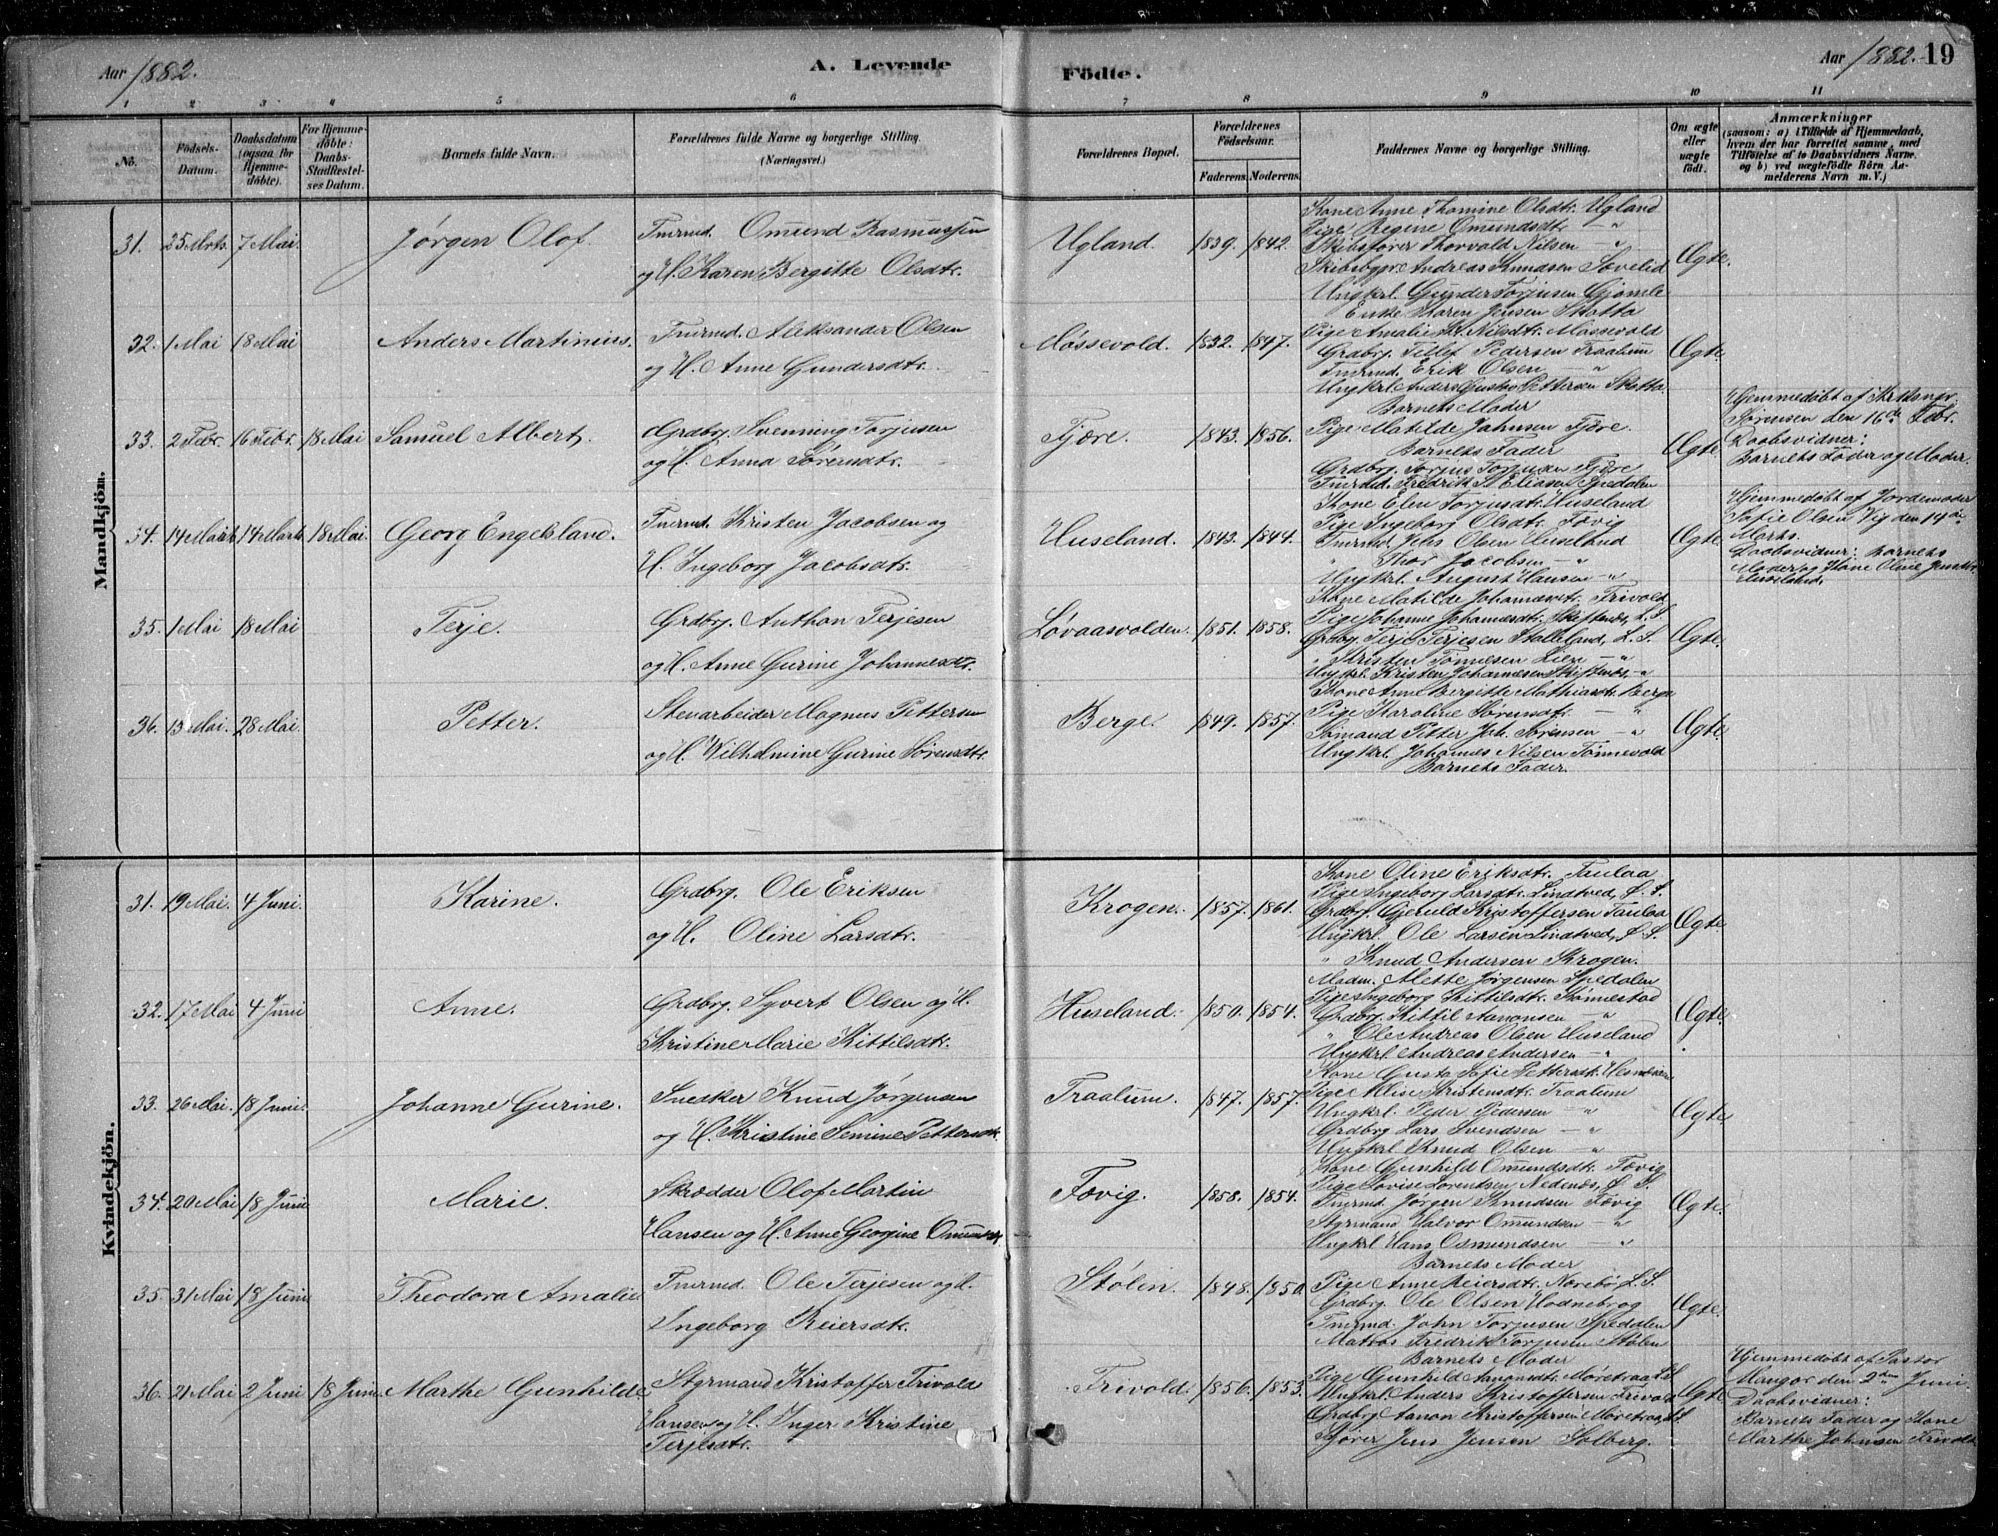 Aar 1882. A. Levende Födte. Aar 1882. 19
1 2 3 4 5 6 7 8 9 10 11
No. Födsels-Datum. Daabsdatum (ogsaa for Hjemme-döbte). For Hjemme-döbte: Daabs-Stadfæstel-ses Datum. Barnets fulde Navn. Forældrenes fulde Navne og borgerlige Stilling. (Næringsvei.) Forældrenes Bopæl. Forældrenes Födselsaar. Faderens. Moderens. Faddernes Navne og borgerlige Stilling. Om ægte eller uægte födt. Anmærkninger (saasom: a) i Tilfælde af Hjemmedaab, hvem der har forrettet samme, med Tilföielse af to Daabsvidners Navne, og b) ved uægtefödte Börn An-melderens Navn m. V.)
Mandkjön.
31. 25 Mrts. 7 Mai Jørgen Olof. Tmrmd. Omund Rasmussen
og H. Karen Bergitte Olsdtr.
Ugland. 1839. 1842.
Kone Anne Thomine Olsdtr. Ugland
Pige Regine Omundsdtr. — "
Skibsfører Thorvald Nilsen — "
Skibsbygr. Andreas Knudsen Søvelid
Ungkrl. Gunder Torjusen Gjømle
Ægte.
32. 1 Mai 18 Mai Anders Martinius. Tmrmd. Aleksander Olsen
og H. Anne Gundersdtr.
Møssevold. 1832. 1847.
Enke Karen Jensen Slotta
Pige Amalie Nilsdtr. Møssevold
Grdbrg. Tellef Pedersen Traalum
Tmrmd. Erik Olsen — "
Ungkrl. Anders Gustav Pettersen Slotta.
Ægte.
33. 2 Febr. 16 Febr. 18 Mai Samuel Albert. Grdbrg. Svenning Torjusen
og H. Anna Sørensdtr.
Fjære. 1843. 1856.
Barnets Moder
Pige Matilde Johnsen Fjære.
Barnets Fader
Grdbrg. Torjus Torjusen Fjære
Tmrmd. Fredrik St. Eliasen Spedalen
Ægte.
Hjemmedøbt af
Sørensen den 16de Febr.
Daabsvidner:
Barnets Fader og Moder.
34. 14 Marts 14 Marts 18 Mai. Georg Engelsland. Tmrmd. Kristen Jacobsen og
H. Ingeborg Jacobsdtr.
Huseland. 1843. 1844.
Kone Elen Torjusdtr. Huseland
Pige Ingeborg Olsdtr. Fævig
Tmrmd. Jens Olsen Huseland
" Thor Jacobsen — "
Ungkrl. August Hansen — "
Ægte.
Hjemmedøbt af Jordemoder
Sofie Olsen Vig den 14de
Marts.
Daabsvidner: Barnets
Moder og Kone Oline
Huseland.
35. 1 Mai 18 Mai Terje. Grdbrg. Anthon Terjesen
og H. Anne Gurine Johannesdtr.
Løvaasvolden. 1851. 1858.
Kone Matilde Johannesdtr. Trivold
Pige Johanne Johannesdtr. Skiftenæs, L. S.
Grdbrg. Terje Terjesen Stalleland, L. S.
" Kristen Tønnesen Lien — "
Ungkrl. Kristen Johannesen Skiftenæs, — "
Ægte.
36. 13 Mai. 28 Mai. Petter. Stenarbeider Magnus Pettersen
og H. Wilhelmine Gurine Sørensdtr.
Berge. 1849. 1857.
Kone Anne Bergitte Mathiasdtr. Berge
Pige Karoline Sørensdtr. — "
Sømand Petter Joh. Sørensen — "
Ungkrl. Johannes Nilsen Tønnevold
Barnets Fader.
Ægte.
Kvindekjön.
31. 19 Mai. 4 Juni. Karine. Grdbrg. Ole Eriksen
og H. Oline Larsdtr.
Krogen. 1857. 1861.
Kone Oline Eriksdtr. Taulaa
Pige Ingeborg Larsdtr. Lindtved, Ø. S.
Grdbrg. Gjeruld Kristoffersen Taulaa
Ungkrl. Ole Larsen Lindtved, Ø. S.
" Knud Andersen Krogen.
Ægte.
32. 17 Mai 4 Juni Anne. Grdbrg. Syvert Olsen og H.
Kristine Marie Kittilsdtr.
Huseland. 1850. 1854.
Madm. Mette Jørgensen Spedalen
Pige Ingeborg Kittilsdtr. Tønnestad
Grdbrg. Kittil Aanonsen — "
" Ole Andreas Olsen Huseland
Ungkrl. Andreas Andersen — "
Ægte.
33. 26 Mai. 18 Juni. Johanne Gurine. Snedker Knud Jørgensen
og H. Kristine Semine Pettersdtr.
Traalum. 1847. 1857.
Kone Gusta Sofie Pettersdtr.
Pige Elise Kristensdtr. Traalum
Ungkrl. Peder Pedersen — "
Grdbrg. Lars Svendsen — "
Ungkrl. Knud Olsen — "
Ægte.
34. 20 Mai 18 Juni Marie. Skrædder Olof Martin
Hansen og H. Anne Georgine Omundsdtr.
Fævig. 1858. 1854.
Kone Gunhild Omundsdtr. Fævig
Pige Lovise Lorentsen Nedenæs, Ø. S.
Tmrmd. Jørgen Knudsen Fævig
Styrmand Halvor Omundsen — "
Ungkrl. Hans Osmundsen — "
Ægte.
35. 31 Mai 18 Juni Theodora Amalie. Tmrmd. Ole Terjesen og H.
Ingeborg Reiersdtr.
Stølen. 1848. 1850.
Barnets Moder
Pige Anne Reiersdtr. Norebø, L. S.
Grdbrg. Ole Olsen Hodnebrog
Tmrmd. John Torjusen Spedalen
Matros Fredrik Torjusen Stølen
Ægte.
36. 21 Mai 2 Juni 18 Juni Marthe Gunhilde. Styrmand Kristoffer Trivold
Hansen og H. Inger Kristine
Terjesdtr.
Trivold. 1856. 1853.
Barnets Moder
Pige Gunhild Aanonsdtr. Møretraa L. S.
Ungkrl. Anders Kristoffersen Trivold
Grdbrg. Aanon Kristoffersen Møretraa L. S.
Jens Jensen Solberg.
Ægte.
Hjemmedøbt af Pastor
Mangor den 2den Juni.
Daabsvidner:
Barnets Fader og Kone
Marthe Johnsen Trivold